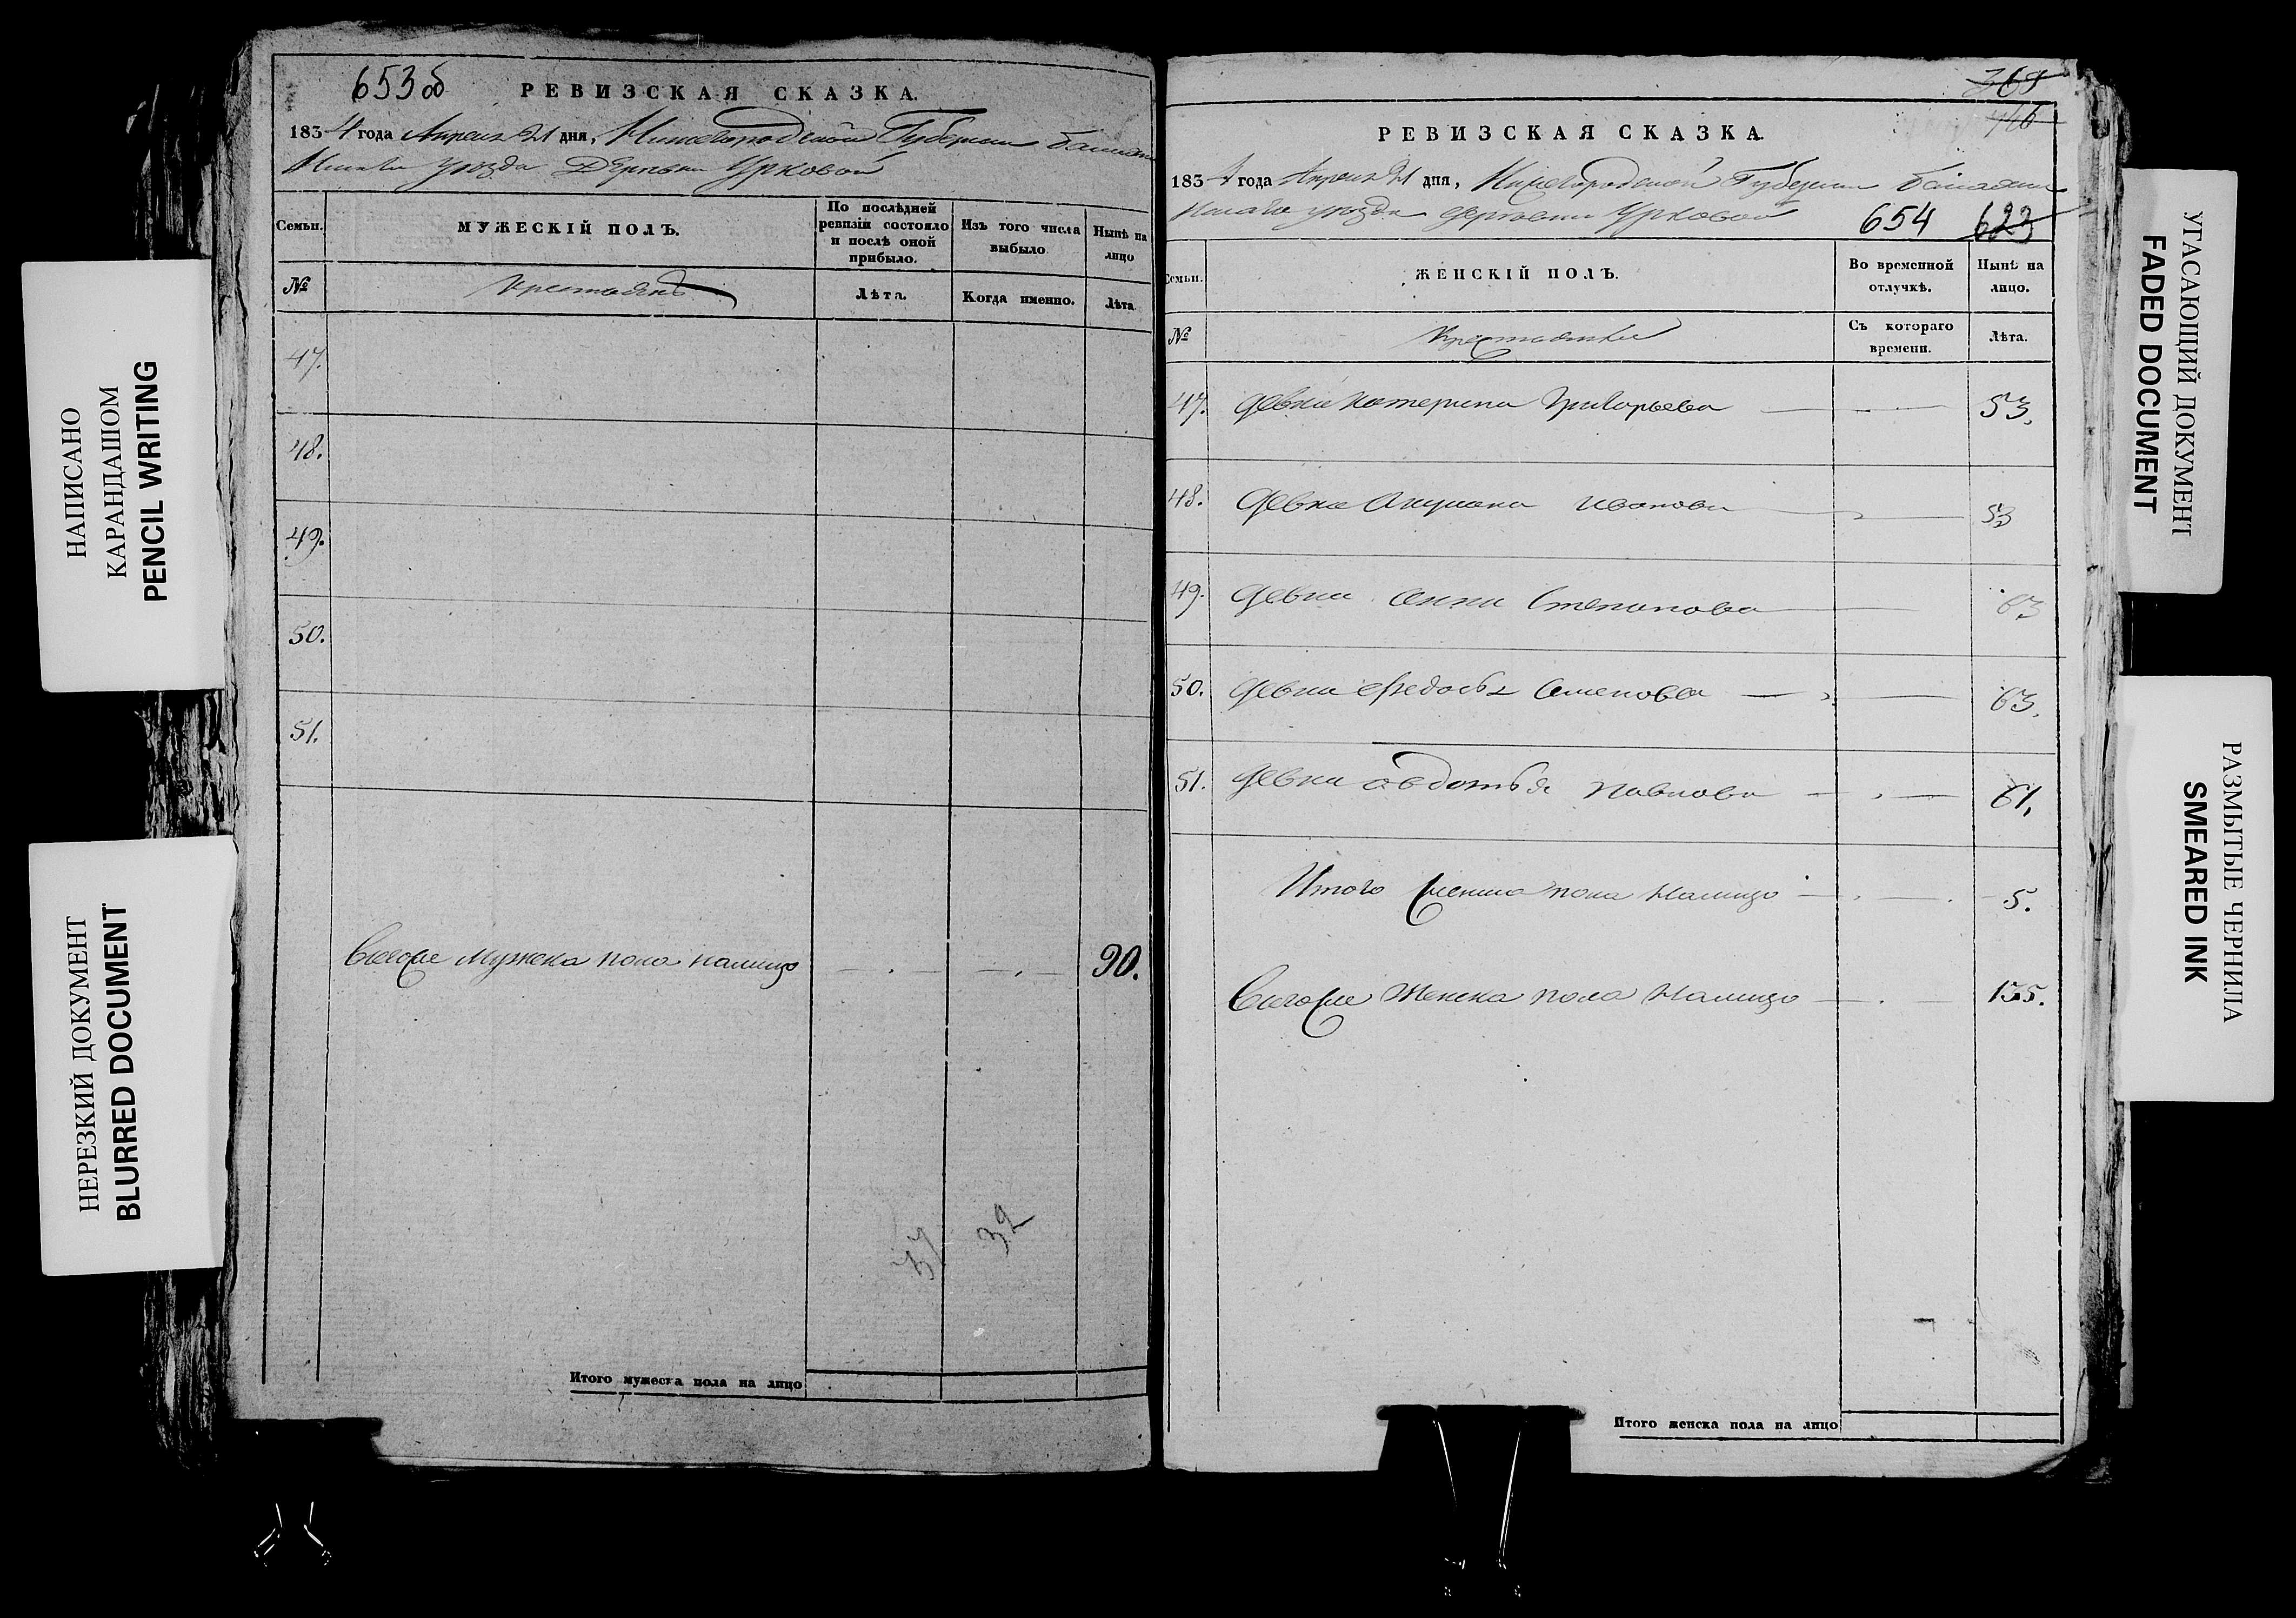 НАПИСАНО
КАРАНДАШОМ
PENCIL WRITING
НЕРЕЗКИЙ ДОКУМЕНТ
BLURRED DOCUMENT
653 об
РЕВИЗСКАЯ СКАЗКА.
1834 года Апреля 21 дня, Нижегородской Губернии Балахн
инскаго уезда Деревни Урковой
Семьи.
МУЖЕСКІЙ ПОЛЪ.
По послѣдней ревизіи состояло и послѣ оной прибыло.
Изъ того числа выбыло
Нынѣ на лицо
№
Крестьянъ
Лѣта.
Когда именно.
Лѣта
47.
48.
49.
50.
51.
Мужска пола налицо 90.
37 32
Итого мужеска пола на лицо
368
146
РЕВИЗСКАЯ СКАЗКА
1834 года Апреля 21 дня, Нижегородской Губернии Балахни
нскаго уезда деревни Урковой 654 623
Семьи.
ЖЕНСКІЙ ПОЛЪ.
Во временной отлучкѣ.
Нынѣ на лицо.
№
Крестьянки
Съ котораго времени.
Лѣта.
47. Девка Катерина Григорьева 53.
48. Девка Акулина Иванова 53
49. Девка Анна Степанова 63
50. Девка Федосья Семенова 63.
51. Девка Авдотья Павлова 61.
Итого женска пола налицо 5.
Женска пола налицо 135.
Итого женска пола на лицо
УГАСАЮЩИЙ ДОКУМЕНТ
FADED DOCUMENT
РАЗМЫТЫЕ ЧЕРНИЛА
SMEARED INK